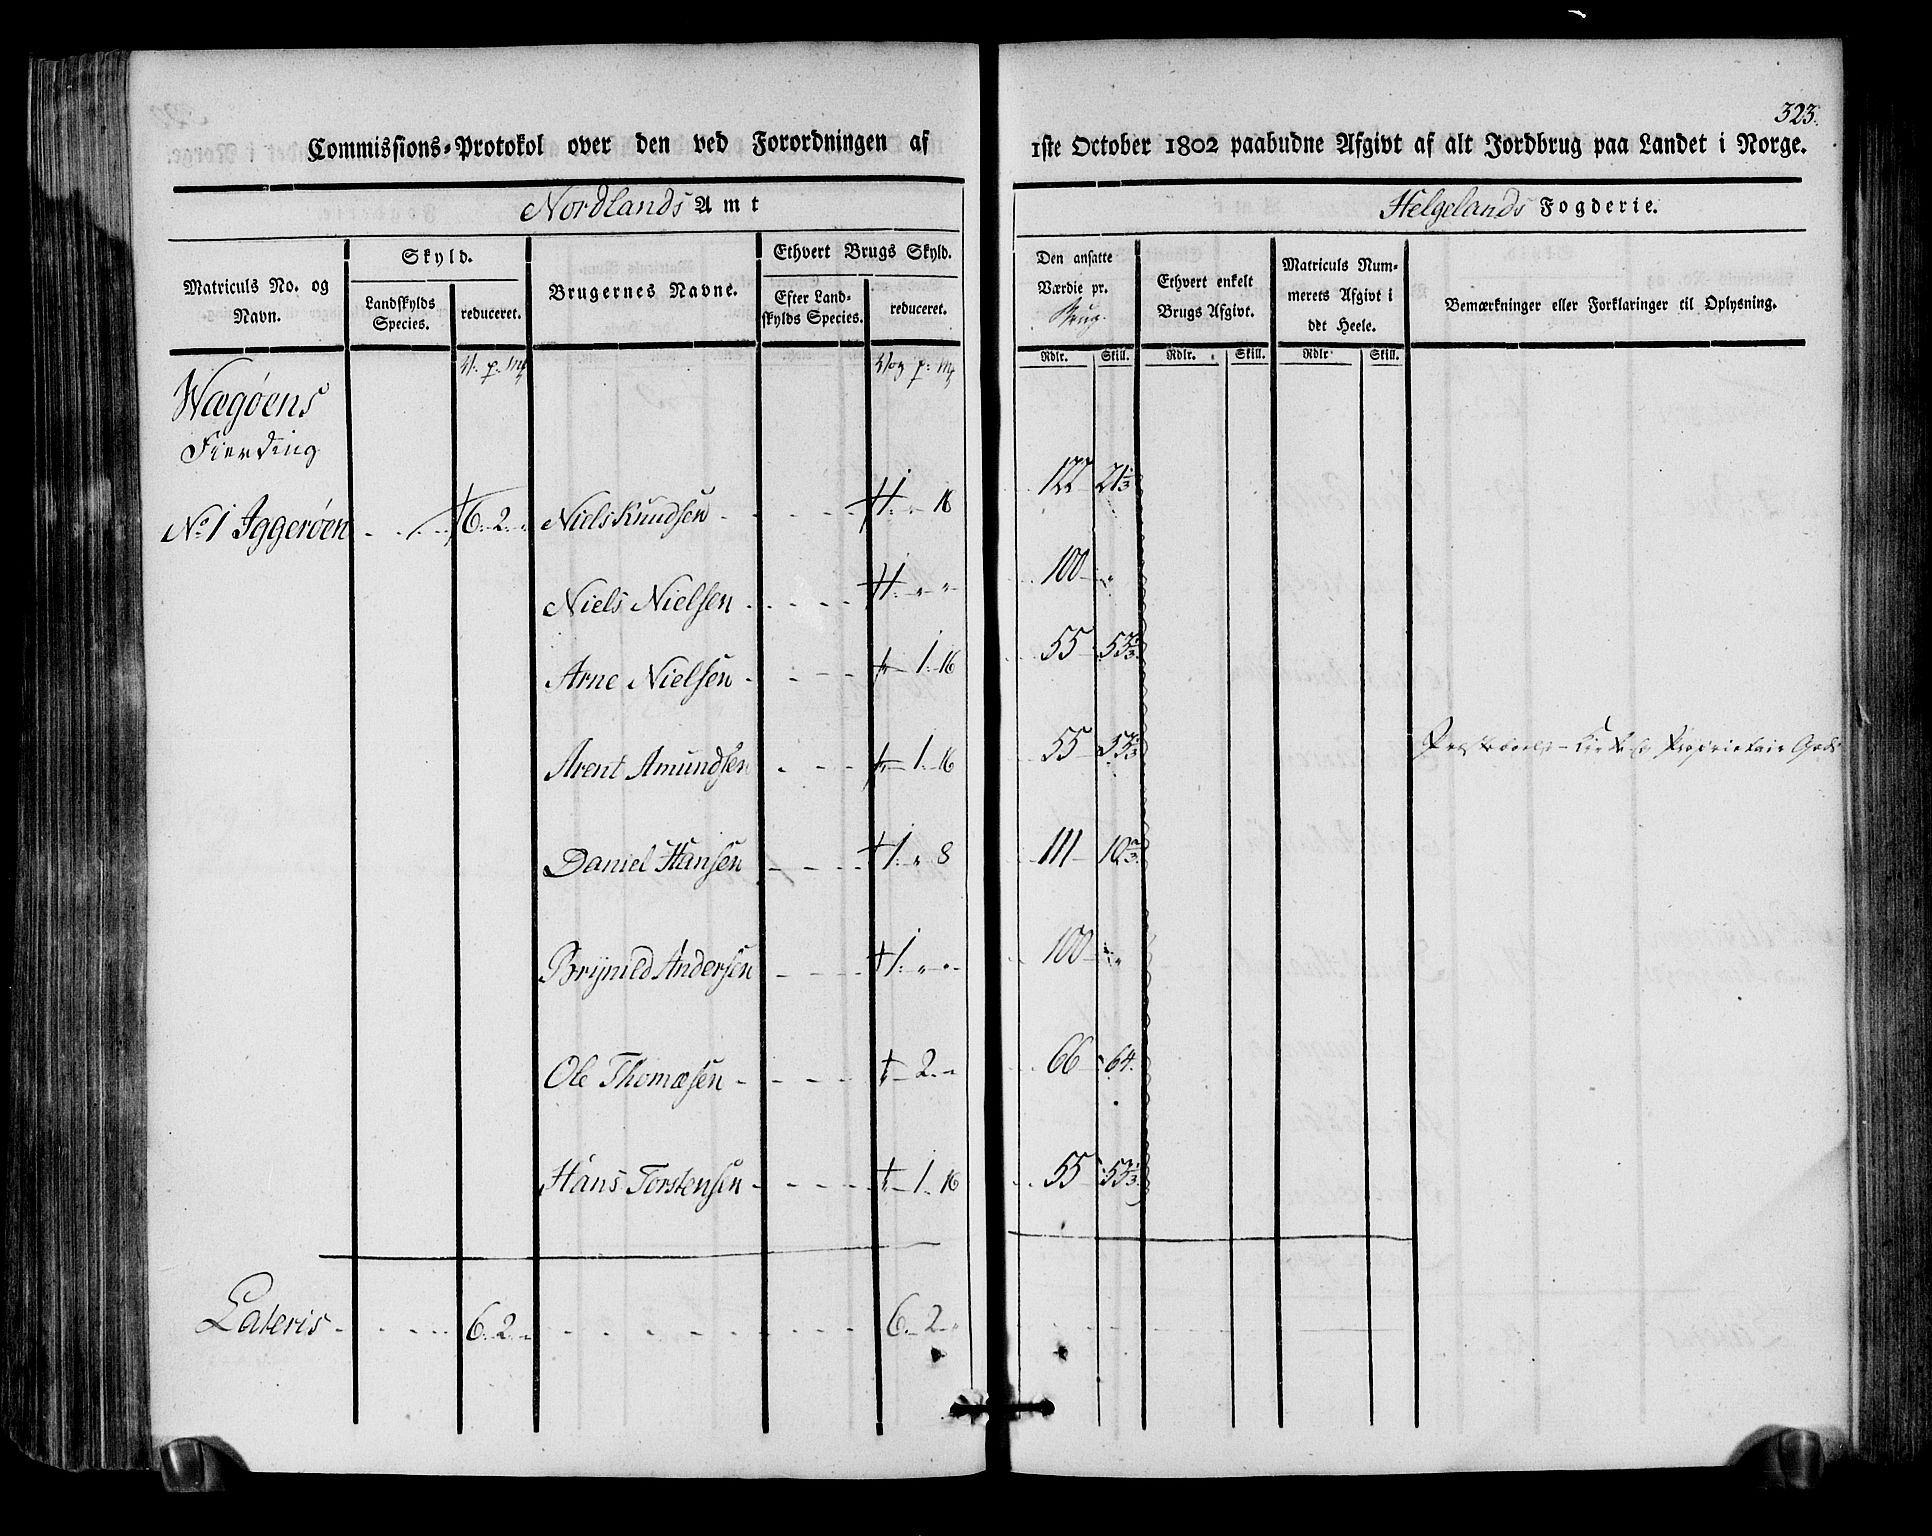 323.
Commissions-Protokol over den ved Forordningen af 1ste October 1802 paabudne Afgivt af alt Jordbrug paa Landet i Norge.
Nordlands Amt
Helgelands Fogderie.
Matriculs No. og Navn.
Skyld.
Landskylds Species.
reduceret.
Brugernes Navne.
Ethvert Brugs Skyld.
Efter Landskylds Species.
reduceret.
Den ansatte Værdie pr. Brug.
Ethvert enkelt Brugs Afgivt.
Matriculs Nummerets Afgivt i det Heele.
Bemærkninger eller Forklaringer til Oplysning.
Rdlr. Skill. Rdlr. Skill. Rdlr Skill.
Wægøens
Fierding
No 1 Iggerøen 6. 2. " Niels Knudsen 1. " 16 122 21 1/3
Niels Nielsen 1. " " 100 "
Arne Nielsen 1. 16 55 53 1/3
Arent Amundsen 1. 16 55 53 1/3
Præsteboels - Kirke og Proprietair Gods
Daniel Hansen 1. " 8 111 10 2/3
Brynild Andersen 1. " " 100 "
Ole Thomæsen 2. " 66 64.
Hans Torstensen 1. 16 55 53 1/3
Lateris 6. 2. " 6. 2. "